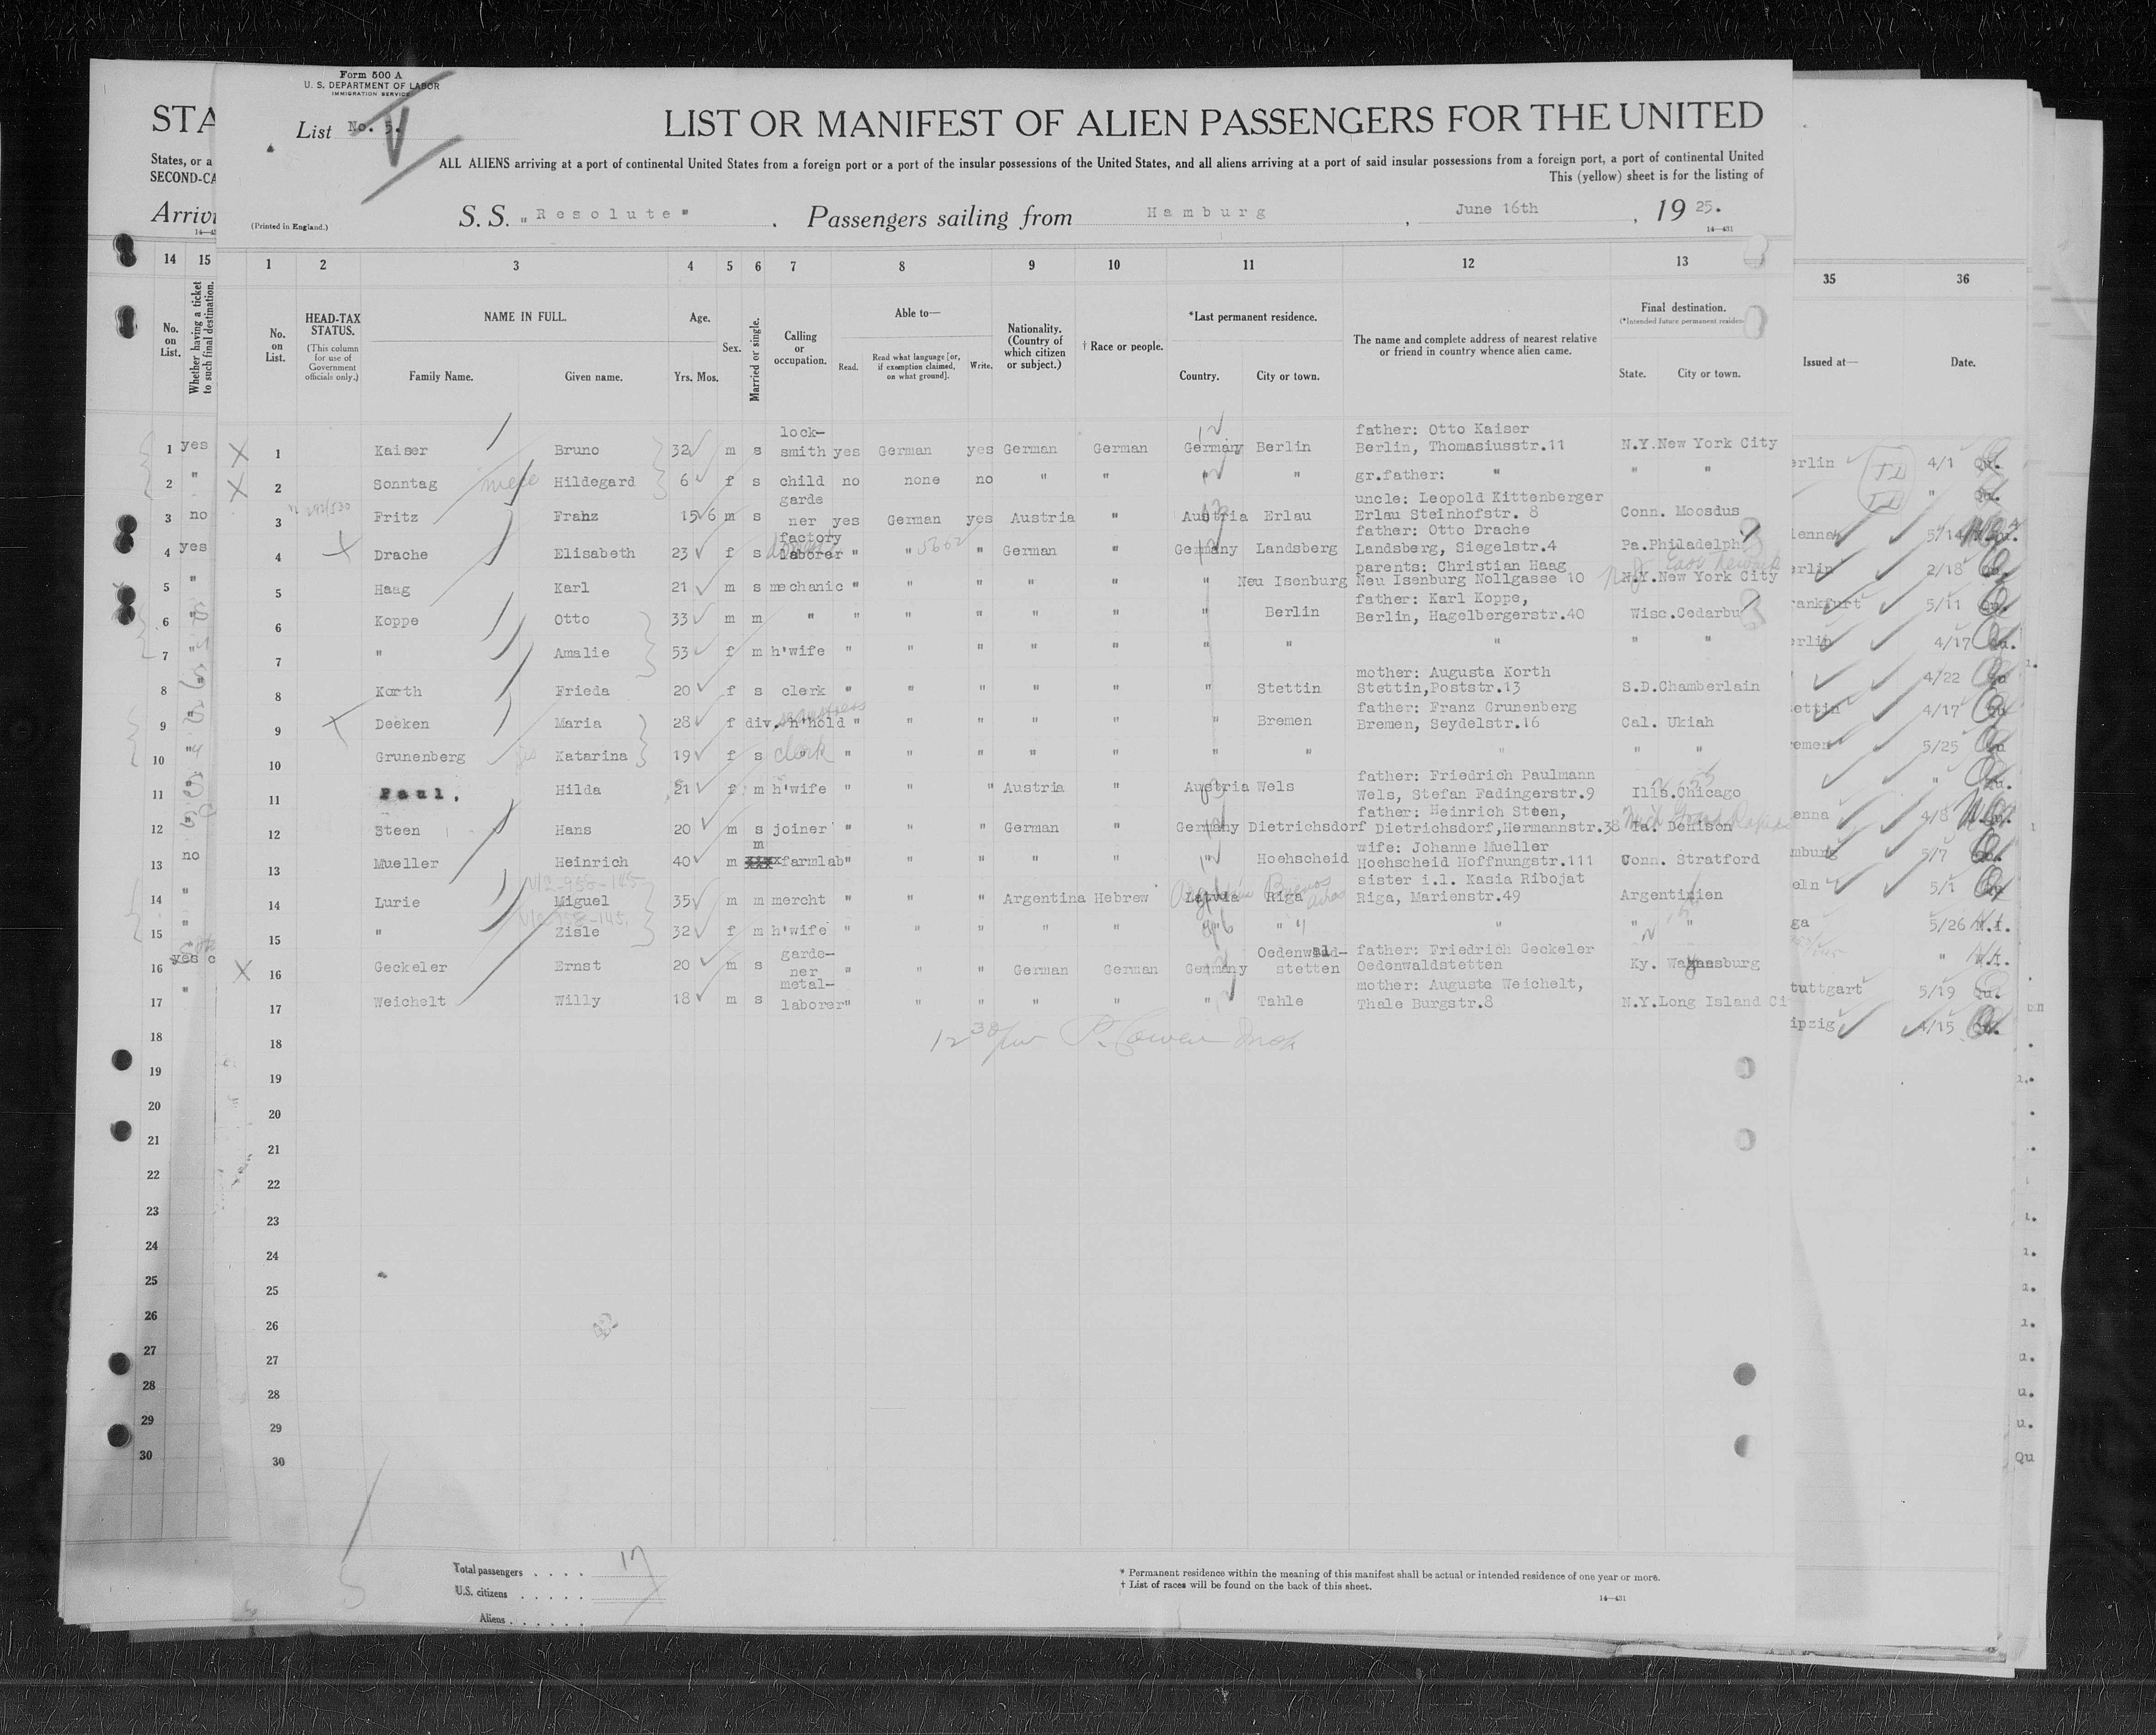 Form 500 A
U. S. DEPARTMENT OF LABOR
IMMIGRATION SERVICE
STA
List No. 5.
V
LIST OR MANIFEST OF ALIEN PASSENGERS FOR THE UNITED
States, or a
SECOND-CA
ALL ALIENS arriving at a port of continental United States from a foreign port or a port of the insular possessions of the United States, and all aliens arriving at a port of said insular possessions from a foreign port, a port of continental United
This (yellow) sheet is for the listing of
Arrivi
(Printed in England.)
S. S. "Resolute" . Passengers sailing from Hamburg , June 16th , 1925.
14—431
14 15 1 2 3 4 5 6 7 8 9 10 11 12 13 35 36
No. on List.
Whether having a ticket to such final destination.
No. on List.
HEAD-TAX STATUS.
(This column for use of Government officials only.)
NAME IN FULL.
Family Name. Given name.
Age.
Yrs. Mos.
Sex.
Married or single.
Calling or occupation.
Able to—
Read. Read what language [or, if exemption claimed, on what ground]. Write.
Nationality. (Country of which citizen or subject.)
† Race or people.
*Last permanent residence.
Country. City or town.
The name and complete address of nearest relative or friend in country whence alien came.
Final destination.
(*Intended future permanent residen
State. City or town.
Issued at— Date.
lock- father: Otto Kaiser
1 yes 1 Kaiser Bruno 32 m s smith yes German yes German German Germany Berlin Berlin, Thomasiusstr.11 N.Y.New York City erlin 4/1 Qu.
2 " 2 Sonntag niece Hildegard 6 f s child no none no " " " " gr.father: " " " " Qu.
garde uncle: Leopold Kittenberger
3 no 3 Fritz Franz 15 6 m s ner yes German yes Austria " Austria Erlau Erlau Steinhofstr. 8 Conn. Moosdus ienna 5/14
factory father: Otto Drache
4 yes 4 Drache Elisabeth 23 f s laborer " " 5662 " German " Germany Landsberg Landsberg, Siegelstr.4 Pa.Philadelph erlin 2/18 Qu.
parents: Christian Haag
5 " 5 Haag Karl 21 m s mechanic " " " " " " Neu Isenburg Neu Isenburg Nollgasse 10 N.Y.New York City N.J. East Newark rankfurt 5/11 Qu.
father: Karl Koppe,
6 " 6 Koppe Otto 33 m m " " " " " " " Berlin Berlin, Hagelbergerstr.40 Wisc.Cedarbu erlin 4/17 Qu.
7 " 7 " Amalie 53 f m h'wife " " " " " " " " " " 4/22
mother: Augusta Korth
8 " 8 Korth Frieda 20 f s clerk " " " " " " Stettin Stettin,Poststr.13 S.D.Chamberlain ettin 4/17
seamstress father: Franz Grunenberg
9 " 9 Deeken Maria 28 f div. h'hold " " " " " " Bremen Bremen, Seydelstr.16 Cal. Ukiah emen 5/25
10 " 10 Grunenberg sis Katarina 19 f s clerk " " " " " " " " " " "
father: Friedrich Paulmann
11 11 Paul, Hilda 21 f m h'wife " " " Austria " Austria Wels Wels, Stefan Fadingerstr.9 Ills.Chicago enna 4/8
father: Heinrich Steen,
12 " 12 Steen Hans 20 m s joiner " " " German " Germany Dietrichsdorf Dietrichsdorf,Hermannstr.38 Ia. Denison Mich Grand Rapids mburg 5/7
m wife: Johanne Mueller
13 no 13 Mueller Heinrich 40 m farmlab " " " " " " Hoehscheid Hoehscheid Hoffnungstr.111 Conn. Stratford oeln 5/1
V12-958-145 sister i.l. Kasia Ribojat
14 " 14 Lurie Miguel 35 m m mercht " " " Argentina Hebrew Latvia Riga Buenos Aires Riga, Marienstr.49 Argentinien ga 5/26 N.I.
15 " 15 " Zisle 32 f m h'wife " " " " " " " " " " " N.I.
garde- Oedenwald- father: Friedrich Geckeler
16 yes 16 Geckeler Ernst 20 m s ner " " " German German Germany stetten Oedenwaldstetten Ky. Waynesburg tuttgart 5/19 Qu.
metal- mother: Auguste Weichelt,
17 " 17 Weichelt Willy 18 m s laborer " " " " " " Tahle Thale Burgstr.8 N.Y.Long Island Ci ipzig 4/15 Qu.
18 18 12 30 pm P. Cowen Insp
19 19
20 20
21 21
22 22
23 23
24 24
25 25
26 26
27 27
28 28
29 29
30 30
Total passengers . . . . 17
U.S. citizens . . . . . .
Aliens . . . . . . .
* Permanent residence within the meaning of this manifest shall be actual or intended residence of one year or more.
† List of races will be found on the back of this sheet.
14—431